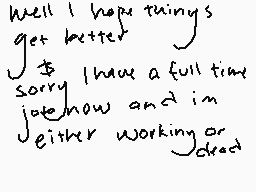 well I hope things
get better
$
sorry I have a full time
job now and im
either working or
dead